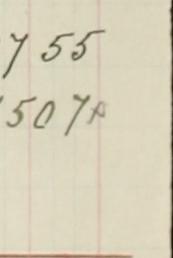 7 55
507